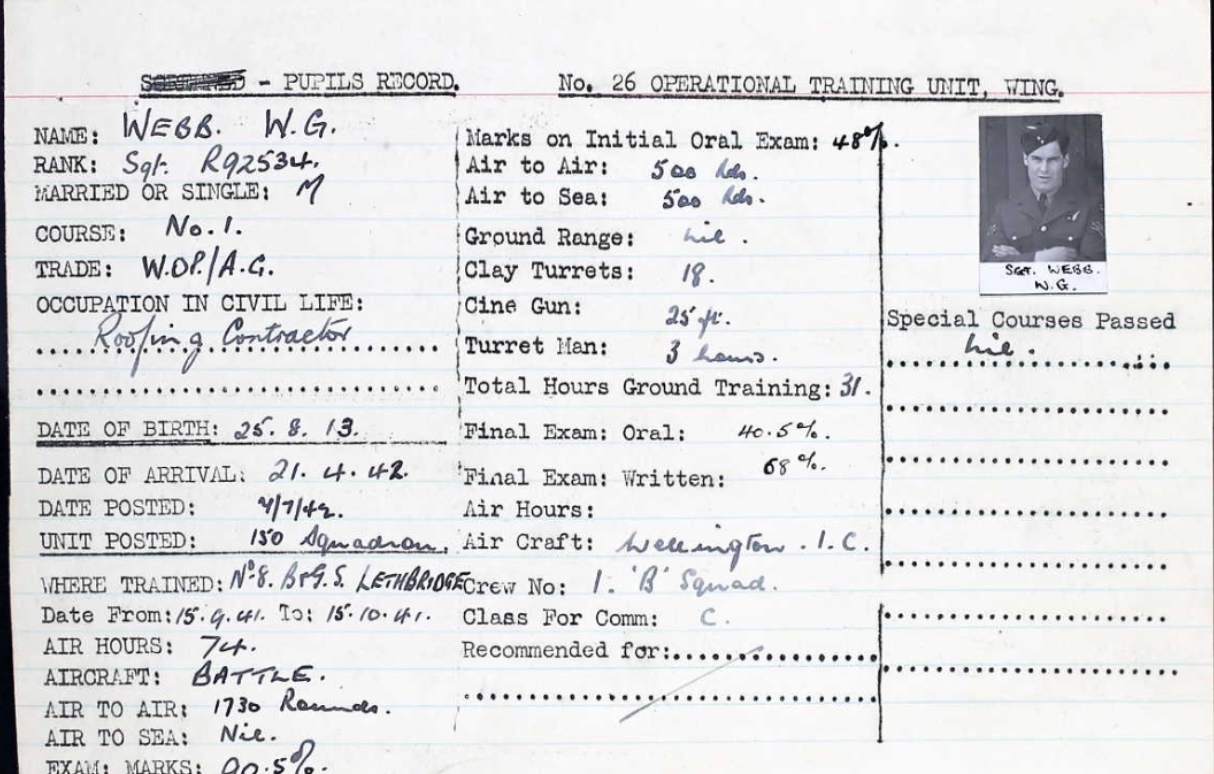 - PUPILS RECORD. No. 26 OPERATIONAL TRAINING UNIT, WING.
NAME: WEBB. W.G.
RANK: Sgt. R92534.
MARRIED OR SINGLE: M
COURSE: No.1.
TRADE: W.OP./A.G.
OCCUPATION IN CIVIL LIFE:
Roofing Contractor
DATE OF BIRTH: 25.8.13.
DATE OF ARRIVAL: 21.4.42.
DATE POSTED: /7/42.
UNIT POSTED: 150 Squadron.
WHERE TRAINED: No 8. B&G.S. LETHBRIDGE
Date From: 15.9.41. To: 15.10.41.
AIR HOURS: 74.
AIRCRAFT: BATTLE.
AIR TO AIR: 1730 Rounds.
AIR TO SEA: Nil.
EXAM: MARKS: 90.5%.
Marks on Initial Oral Exam: 48%.
Air to Air: 500 Rds.
Air to Sea: 500 Rds.
Ground Range: nil.
Clay Turrets: 18.
Cine Gun: 25 ft.
Turret Man: 3 hours.
Total Hours Ground Training: 31.
Final Exam: Oral: 40.5%.
Final Exam: Written: 68%.
Air Hours:
Air Craft: Wellington. I.C.
Crew No: 1. 'B' Squad.
Class For Comm: C.
Recommended for:
SGT. WEBB.
W.G.
Special Courses Passed
nil.